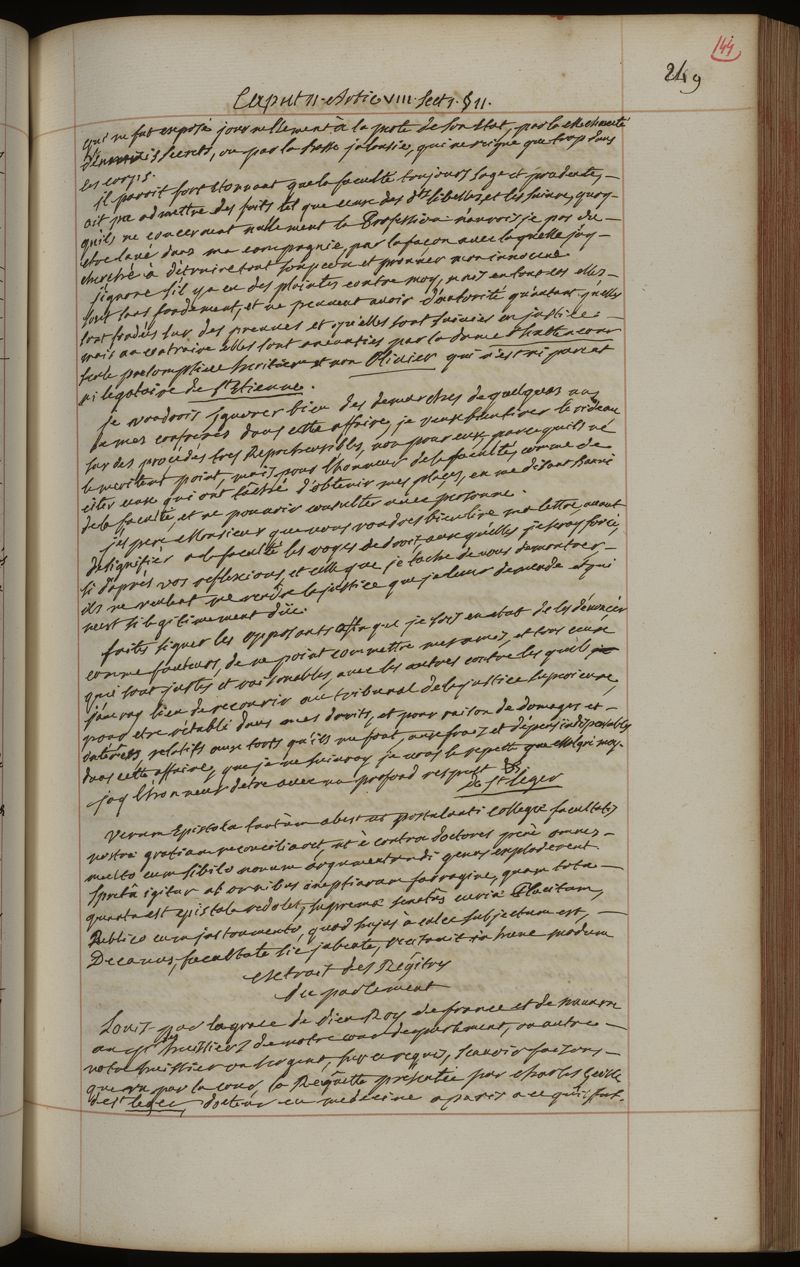 144
249
Caput II. Artic VIII. Sect 1. §11.
qui ne fut exposé journellement à la perte de son Etat, par la méchanceté
d'ennemis secrets, ou par la basse jalousie, qui ne règne que trop dans
les corps.
il paroit fort étonnant que la faculté toujours sage et prudente,
ait pu admettre des faits tel que ceux des dts libelles, et les suivre, quoy-
qu'ils ne concernent nullement la Profession. n'aurois je pas dû
etre lavé dans ma compagnie, par la façon avec laquelle j'ay
cherché à détruire tout soupçon et prouver mon innocence
J'ignore s'il y a eu des plaintes contre moy, mais en tout cas elles
sont sans fondement, et ne peuvent avoir d'autorité qu'autant qu'elles
sont fondées sur des preuves et qu'elles sont suivies en justice
mais au contraire elles sont anéanties par la dame
seule présomptive heritiere et non Olivier qui n'est ni parent
ni legataire de St Etienne.
je voudrois ignorer bien des demarches de quelques uns
de mes confreres dans cette affaire, je veux bien tirer le rideau
sur des procédés tres reprehensibles, non pour eux parcequ'ils ne
le meritent point, mais pour l'honneur de la faculté, comme de
citer ceux qui ont tâché d'obtenir mes places, en me disant banni
de la faculté, et ne pouvoir consulter avec personne.
j'espere Monsieur que vous voudrés bien lire ma lettre avant
de signifier a la faculté les voyes de droit, auxquelles je seray forcé,
si d'après vos reflexions et celle que je tache de vous demontrer
ils ne veulent me rendre la justice que je leur demande et qui
m'est si legitimement düe.
faites signer les opposants afin que je sois en etat de les dénoncer
comme fauteurs, de ne point commettre mes amis, et tous ceux
qui sont justes et raisonables, avec les autres contre les quels
j'auray lieu de recourir au tribunal de la justice superieure,
pour etre rétabli dans mes droits, et pour raison de domages et
interêts, relatifs aux torts qu'ils me font, aux frais et dépens indispensables
dans cette affaire, que je ne suivray je vous le repette que malgré moy.
j'ay l'honneur d'etre avec un profond respect &c.
de St Leger
Verum Epistola tantùm abest ut postulanti collegæ facultatis
nostræ gratiam reconciliaret, ut è contra doctores penè omnes
multo cum sibilo novum argumentandi genus exploderent
spretâ igitur ab omnibus ineptiarum farragine, quam tota
quanta est epistola redolet, supremæ senatûs curiæ Placitum,
Publico cum instrumento, quod hujus à calce subjectum est,
Decanus, facultate sic jubente, recitavit in hunc modum
Extrait des Régitres
du parlement
Louis par la grace de Dieu Roy de france et de navarre
au pr des huissiers de notre cour de parlement, ou autre
notre huissier ou sergent, sur ce requis, sçavoir faisons
que vu par la cour la Requette presentée par Charles
de St Leger, docteur en medecine a paris a ce qu'il fut